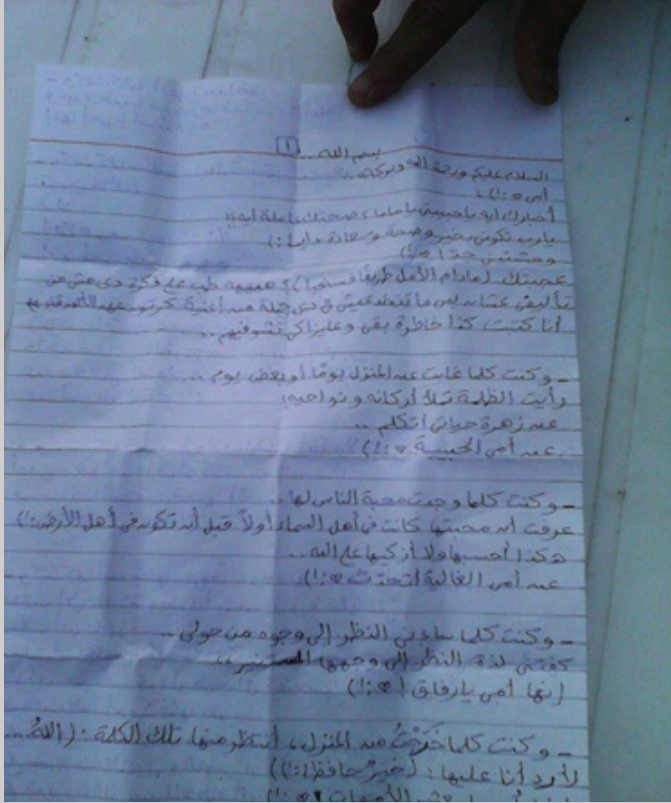 بسم الله .. ١
السلام عليكم ورحمة الله وبركاته ..
أمي ♥ :) :
أخبارك ايه يا حبيبتي يا ماما ، صحتك عاملة ايه ؛؛
يارب تكوني بخير وصحة وسعادة دايما :)
وحشتيني جدًا ♥ :)
عجبتك (مادام الأمل طريقًا فسنحيا) ؟ هييييه طب على فكرة دي مش من
تأليفي عشان بس ما فيش دي جملة من أغنية كرتون عهد الأصدقاء
أنا كتبت كذا خاطرة بقى وعايزاكي تشوفيهم ..
- وكنت كلما غابت عن المنزل يومًا أو بعض يوم ..
رأيت الظلمة تملأ أركانه ونواحيه؛
عن زهرة حياتي أتكلم ..
عن أمي الحبيبة ♥ :!)
- وكنت كلما وجدت محبة الناس لها ..
عرفت أن محبتها كانت في أهل السماء أولاً قبل أن تكون في أهل الأرض :!)
هكذا أحسبها ولا أزكيها على الله ..
عن أمي الغالية أتحدث ♥ :!)
- وكنت كلما ساءني النظر إلى وجوه من حولي ..
كفتني لذة النظر إلى وجهها المستنير ؛؛
إنها أمي يا رفاق (♥ :!)
- وكنت كلما خَرَجْتُ من المنزل ، أنتظر منها تلك الكلمة : (اللهُ ...
لأرد أنا عليها : (خيرٌ حافظًا :!))
الأمهات ♥ :!)